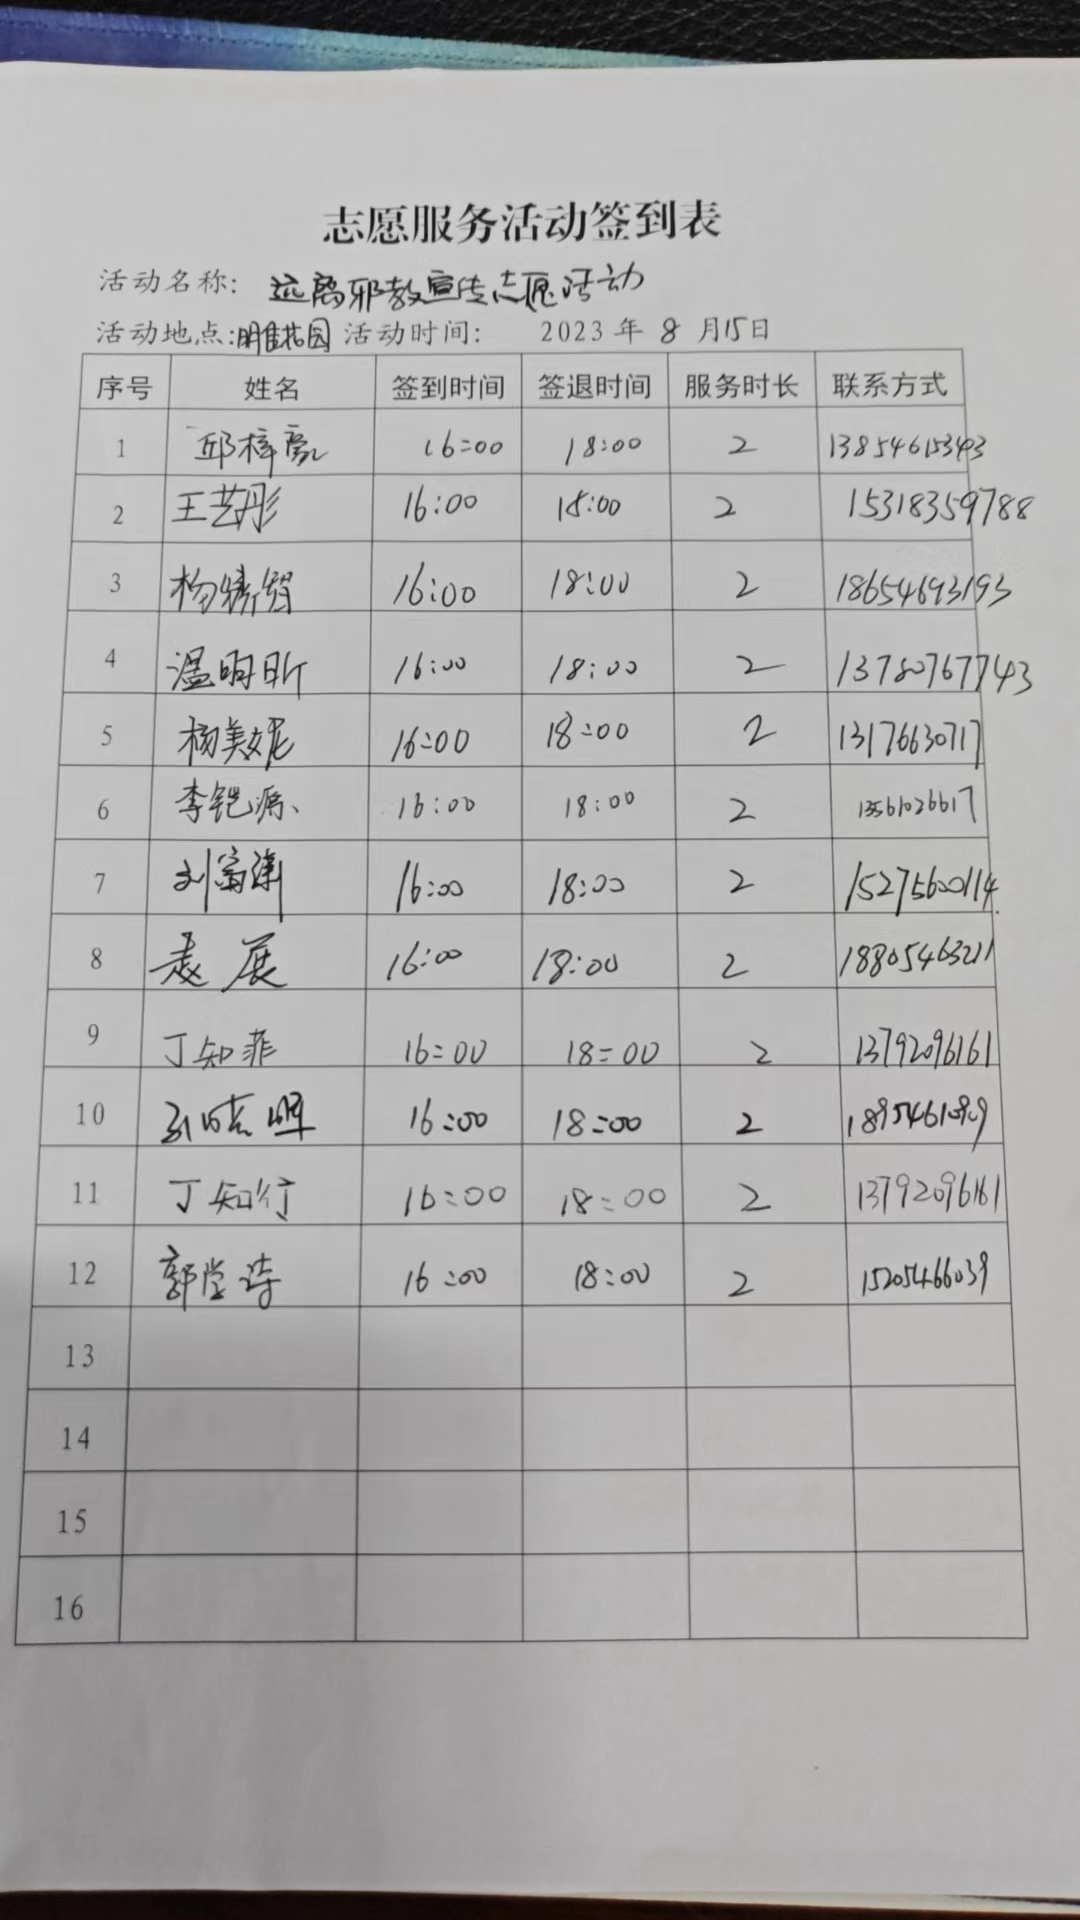 志愿服务活动签到表
活动名称: 远离邪教宣传志愿活动
活动地点:明佳花园 活动时间: 2023年8月15日
序号 姓名 签到时间 签退时间 服务时长 联系方式
1 邱梓豪 16:00 18:00 2 13854615343
2 王艺彤 16:00 18:00 2 15318359788
3 杨 16:00 18:00 2 18654693193
4 温明昕 16:00 18:00 2 13780767743
5 杨美妮 16:00 18:00 2 13176630717
6 李铠源 16:00 18:00 2 13561026617
7 刘富 16:00 18:00 2 15275600114
8 展 16:00 18:00 2 18805463211
9 丁知菲 16:00 18:00 2 13792096161
10 16:00 18:00 2
11 丁知行 16:00 18:00 2 13792096161
12 郭堂诗 16:00 18:00 2 15205466039
13
14
15
16